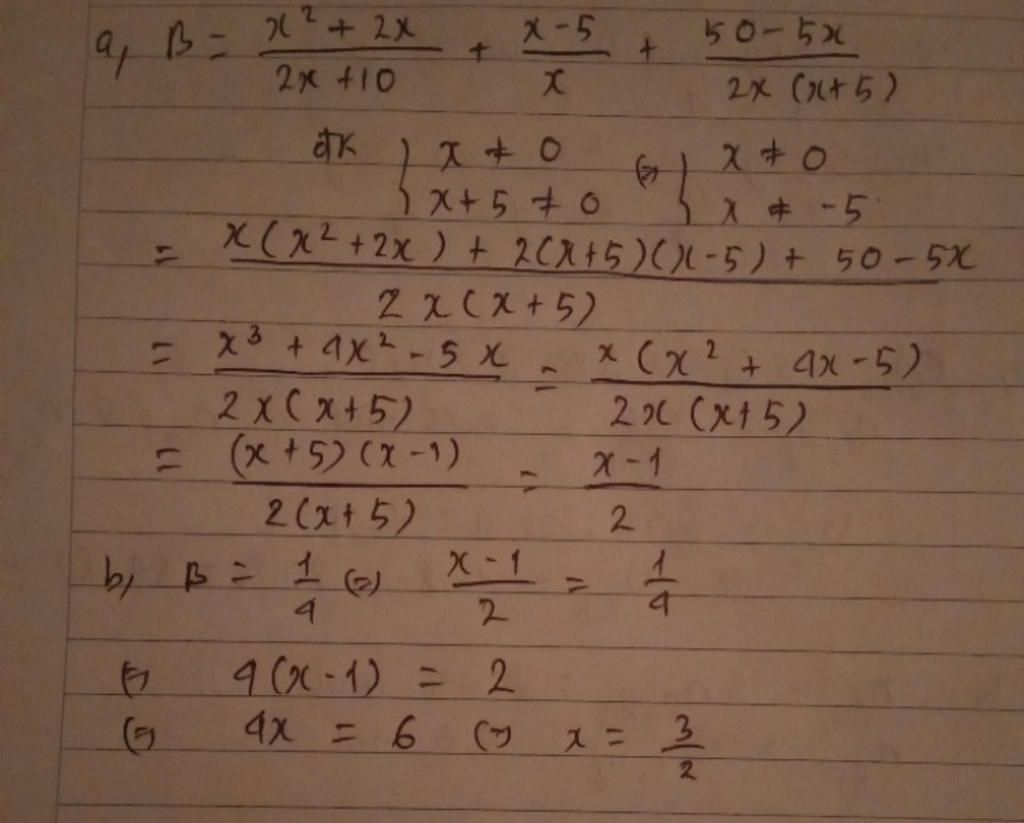 a, B = (x² + 2x)/(2x + 10) + (x - 5)/x + (50 - 5x)/(2x (x + 5))
đk { x ≠ 0 ; x + 5 ≠ 0 (=) { x ≠ 0 ; x ≠ -5
= (x(x² + 2x) + 2(x+5)(x-5) + 50 - 5x)/(2x(x+5))
= (x³ + 4x² - 5x)/(2x(x+5)) = (x(x² + 4x - 5))/(2x(x+5))
= ((x+5)(x-1))/(2(x+5)) = (x-1)/2
b, B = 1/4 (=) (x-1)/2 = 1/4
(=) 4(x-1) = 2
(=) 4x = 6 (=) x = 3/2